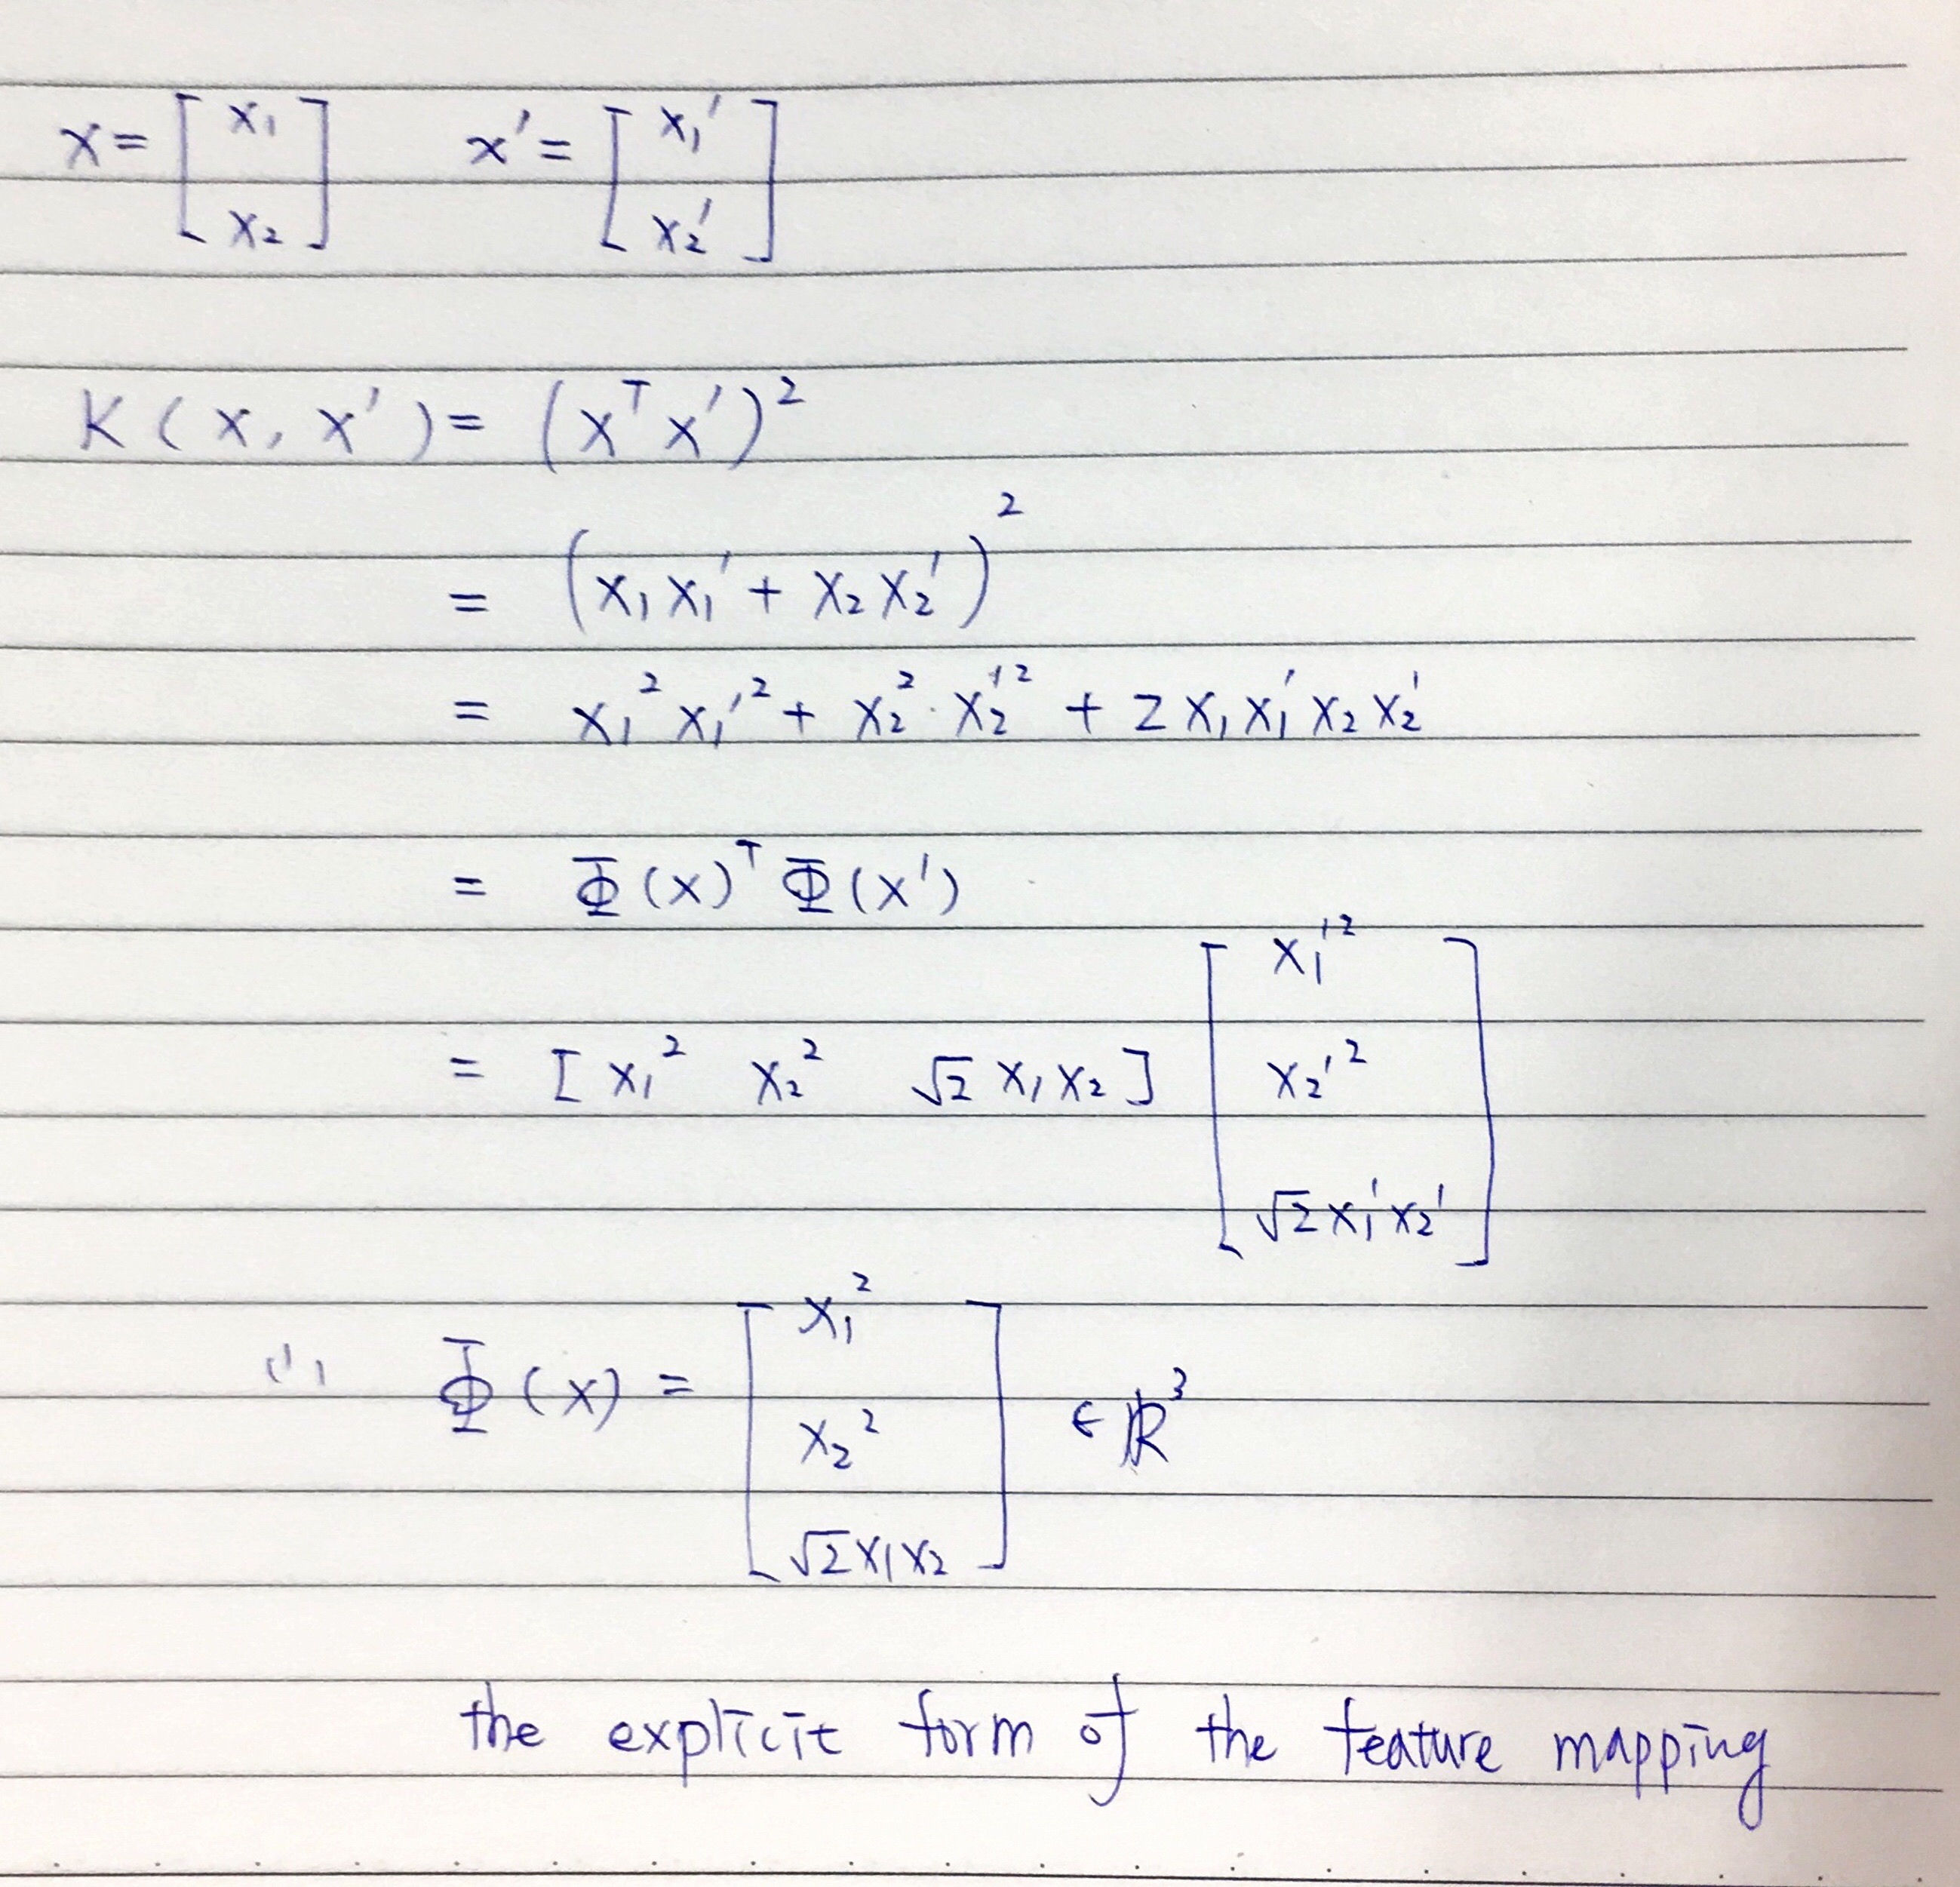 x = [ x₁ x₂ ]   x' = [ x₁' x₂' ]
K(x, x') = (xᵀx')²
= (x₁x₁' + x₂x₂')²
= x₁²x₁'² + x₂²·x₂'² + 2x₁x₁'x₂x₂'
= Φ(x)ᵀΦ(x')
= [x₁²  x₂²  √2x₁x₂] [ x₁'² x₂'² √2x₁'x₂' ]
∴ Φ(x) = [ x₁² x₂² √2x₁x₂ ] ∈ ℝ³
the explicit form of the feature mapping